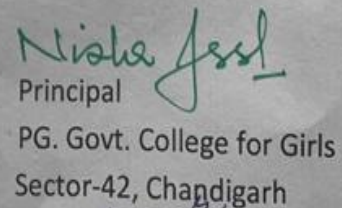 Nisha
Principal
PG. Govt. College for Girls
Sector-42, Chandigarh